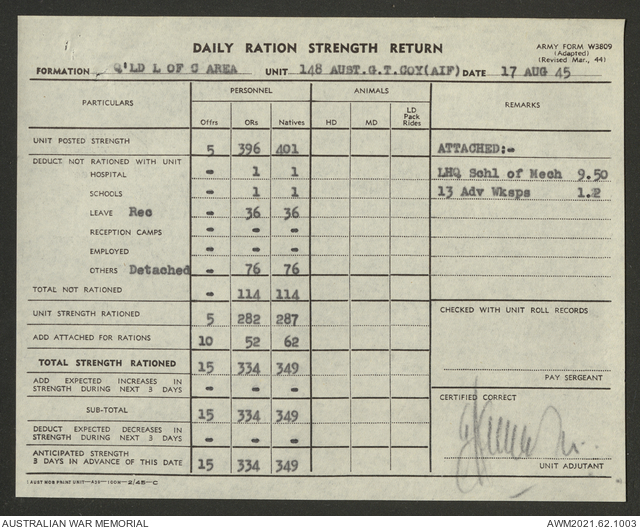 DAILY RATION STRENGTH RETURN
ARMY FORM W3809
(Adapted)
(Revised Mar., 44)
FORMATION Q'LD L OF C AREA UNIT 148 AUST.G.T.COY(AIF) DATE 17 AUG 45
PARTICULARS PERSONNEL ANIMALS REMARKS
Offrs ORs Natives HD MD LD Pack Rides
UNIT POSTED STRENGTH 5 396 401 ATTACHED:-
DEDUCT NOT RATIONED WITH UNIT
HOSPITAL - 1 1 LHQ Schl of Mech 9.50
SCHOOLS - 1 1 13 Adv Wksps 1.2
LEAVE Rec - 36 36
RECEPTION CAMPS - - -
EMPLOYED - - -
OTHERS Detached - 76 76
TOTAL NOT RATIONED - 114 114
UNIT STRENGTH RATIONED 5 282 287 CHECKED WITH UNIT ROLL RECORDS
ADD ATTACHED FOR RATIONS 10 52 62
TOTAL STRENGTH RATIONED 15 334 349
PAY SERGEANT
ADD EXPECTED INCREASES IN
STRENGTH DURING NEXT 3 DAYS - - -
CERTIFIED CORRECT
SUB-TOTAL 15 334 349
DEDUCT EXPECTED DECREASES IN
STRENGTH DURING NEXT 3 DAYS - - -
ANTICIPATED STRENGTH
3 DAYS IN ADVANCE OF THIS DATE 15 334 349
UNIT ADJUTANT
1 AUST MOB PRINT UNIT—A39—100M—2/45—C
AUSTRALIAN WAR MEMORIAL
AWM2021.62.1003